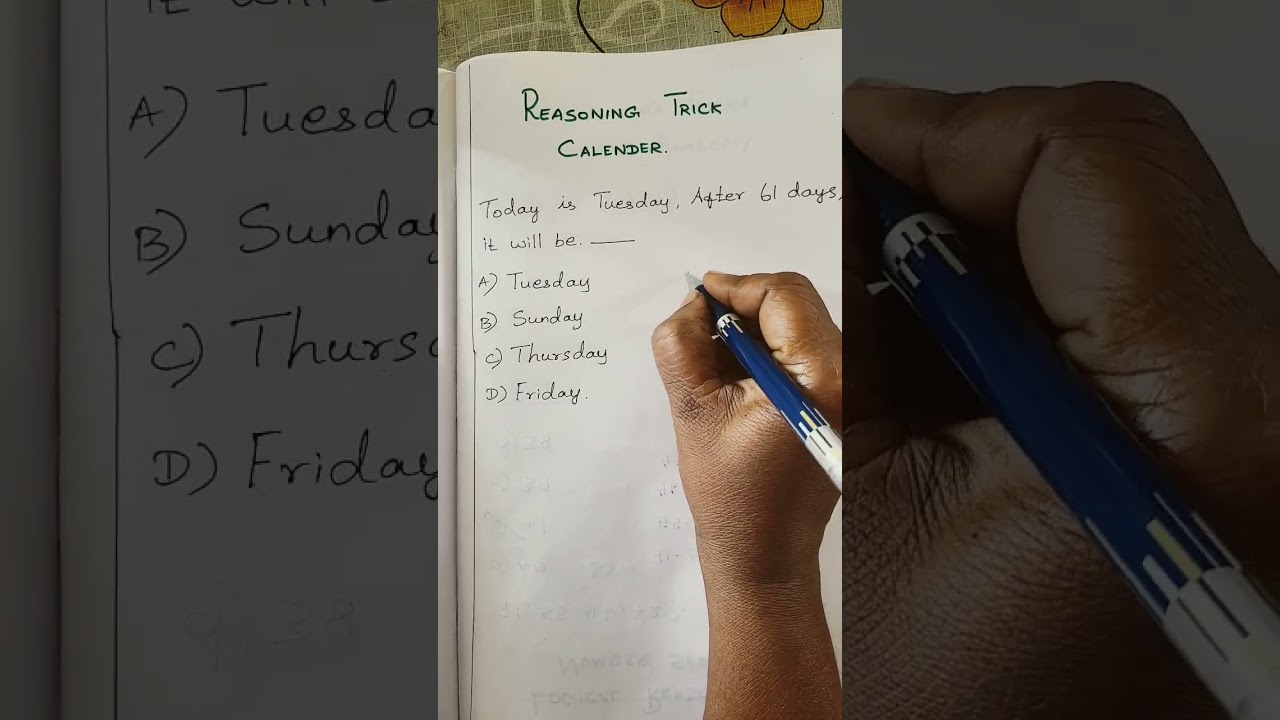 REASONING TRICK
CALENDER.
Today is Tuesday, After 61 days,
it will be. ___
A) Tuesday
B) Sunday
C) Thursday
D) Friday.